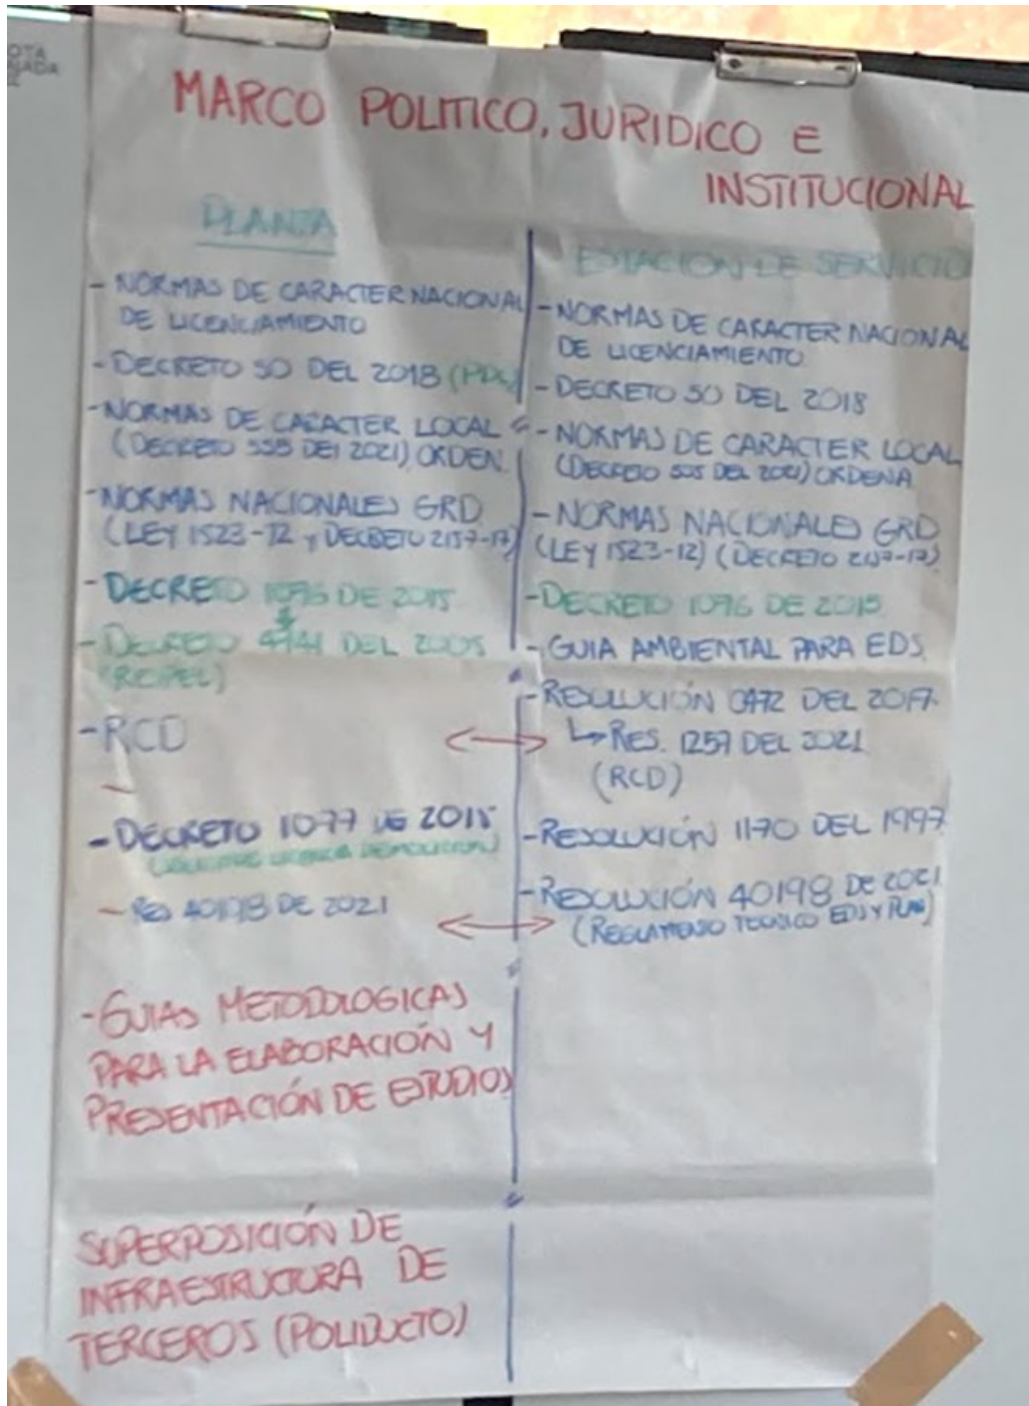 MARCO POLITICO, JURIDICO E
INSTITUCIONAL
PLANTA
- NORMAS DE CARACTER NACIONAL
DE LICENCIAMIENTO
- DECRETO 50 DEL 2018
- NORMAS DE CARACTER LOCAL
(DECRETO 555 DEL 2021) ORDEN.
- NORMAS NACIONALES GRD
(LEY 1523-12 y DECRETO 2157-17)
- DECRETO 1076 DE 2015
- DECRETO 4741 DEL 2005
- RCD
- DECRETO 1077 DE 2015
LICENCIA DEMOLICION)
- RES 40198 DE 2021
- GUIAS METODOLOGICAS
PARA LA ELABORACIÓN Y
PRESENTACIÓN DE ESTUDIOS
SUPERPOSICIÓN DE
INFRAESTRUCTURA DE
TERCEROS (POLIDUCTO)
ESTACION DE SERVICIO
- NORMAS DE CARACTER NACIONAL
DE LICENCIAMIENTO
- DECRETO 50 DEL 2018
- NORMAS DE CARACTER LOCAL
(DECRETO DEL 2021) ORDENA
- NORMAS NACIONALES GRD
(LEY 1523-12) (DECRETO 2157-17)
- DECRETO 1076 DE 2015
- GUIA AMBIENTAL PARA EDS
- RESOLUCIÓN 0472 DEL 2017
RES. 1257 DEL 2021
(RCD)
- RESOLUCIÓN 1170 DEL 1997
- RESOLUCIÓN 40198 DE 2021
(REGLAMENTO TECNICO EDS Y PLAN)